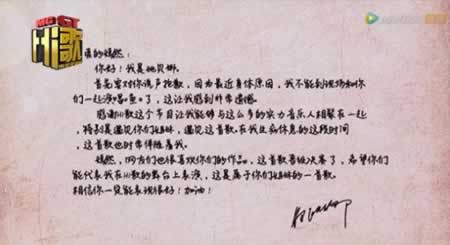 Hi歌
的嫣然：
你好！我是姚贝娜。
首先要对你说声抱歉，因为最近身体原因，我不能到现场和你
们一起演唱鱼了，这让我感到非常遗憾。
感谢Hi歌这个节目让我能够与这么多的实力音乐人相聚在一起
，特别是遇见你们姐妹，遇见这首歌在我生病休息的这段时间
，这首歌也时常伴随着我。
嫣然，网友们也很喜欢你们的作品，这首歌晋级决赛了，希望你们
能代表我在Hi歌的舞台上表演，这是属于你们姐妹的一首歌。
相信你一定能表现很好！加油！